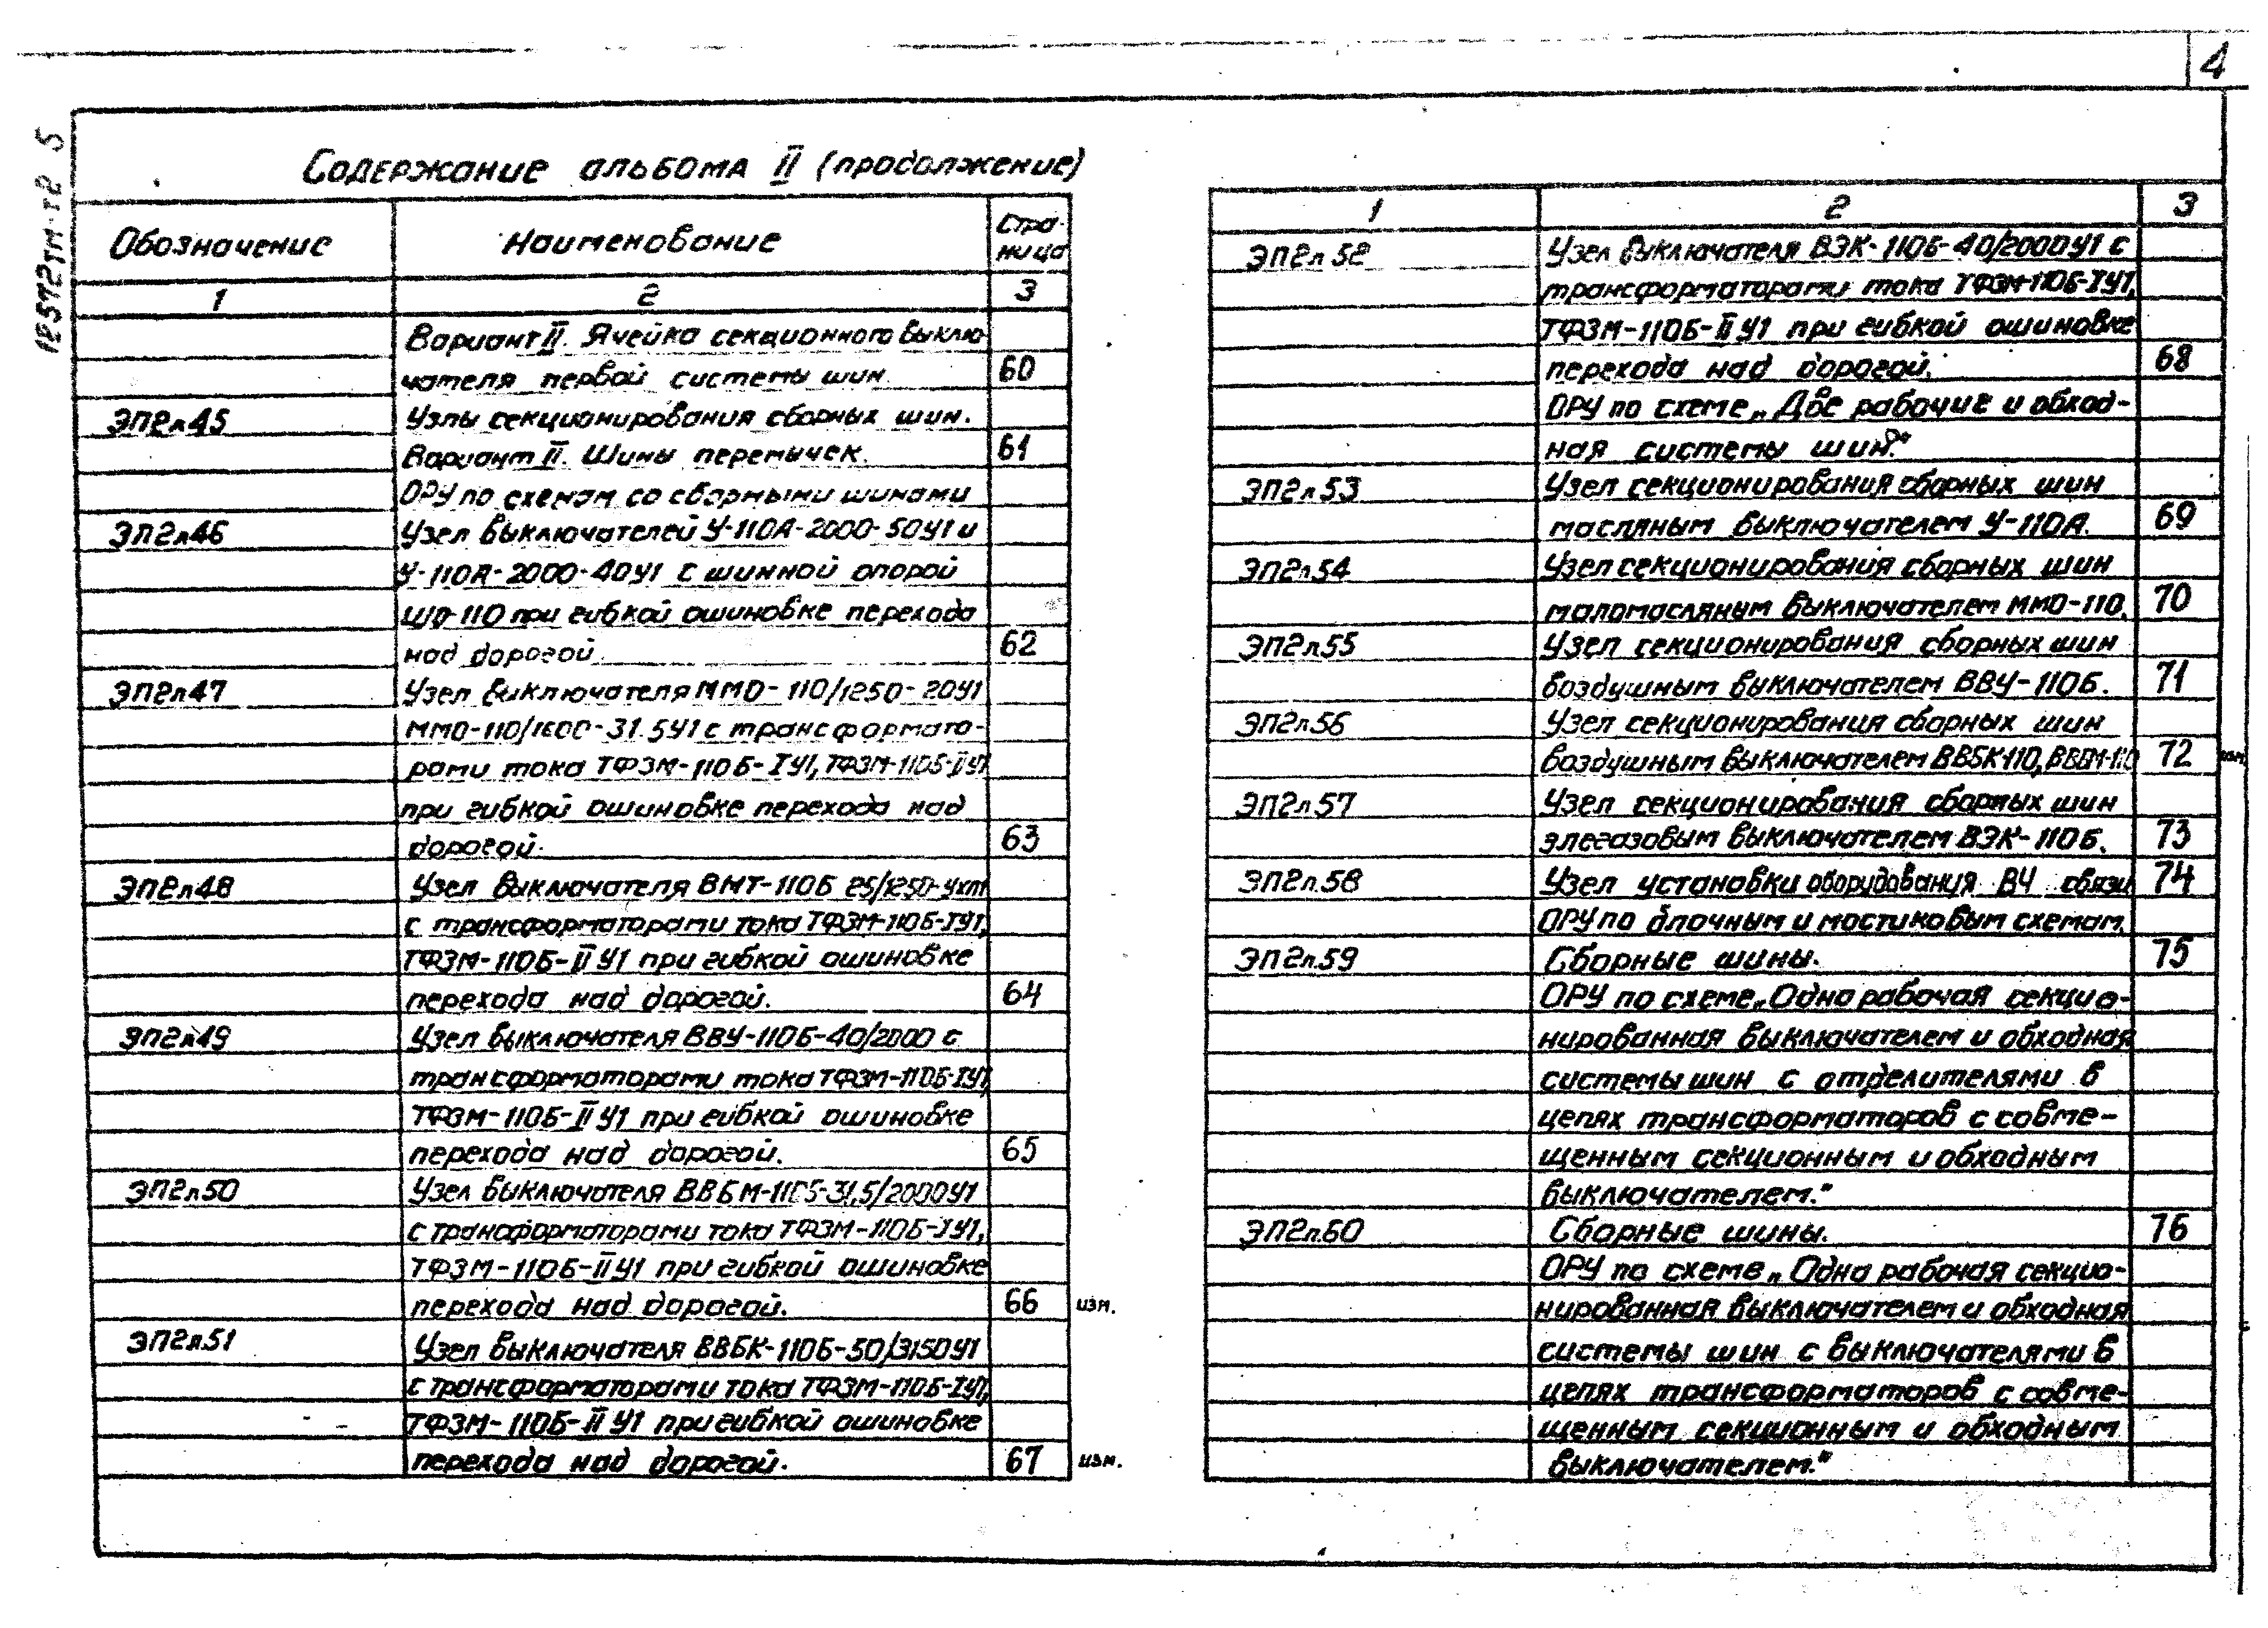 4
12572тм-т2 5
Содержание альбома II (продолжение)
Обозначение Наименование Стра-
ница
1 2 3
Вариант II. Ячейка секционного выклю-
чателя первой системы шин. 60
ЭП2л45 Узлы секционирования сборных шин.
Вариант II. Шины перемычек. 61
ОРУ по схемам со сборными шинами
ЭП2л46 Узел выключателей У-110А-2000-50У1 и
У-110А-2000-40У1 с шинной опорой
ШО-110 при гибкой ошиновке перехода
над дорогой. 62
ЭП2л47 Узел выключателя ММО-110/1250-20У1
ММО-110/1600-31.5У1 с трансформато-
рами тока ТФЗМ-110Б-IУ1, ТФЗМ-110Б-IIУ1
при гибкой ошиновке перехода над
дорогой. 63
ЭП2л48 Узел выключателя ВМТ-110Б 25/1250-УХЛ1
с трансформаторами тока ТФЗМ-110Б-IУ1,
ТФЗМ-110Б-IIУ1 при гибкой ошиновке
перехода над дорогой. 64
ЭП2л49 Узел выключателя ВВУ-110Б-40/2000 с
трансформаторами тока ТФЗМ-110Б-IУ1,
ТФЗМ-110Б-IIУ1 при гибкой ошиновке
перехода над дорогой. 65
ЭП2л50 Узел выключателя ВВБМ-110Б-31,5/2000У1
с трансформаторами тока ТФЗМ-110Б-IУ1,
ТФЗМ-110Б-IIУ1 при гибкой ошиновке
перехода над дорогой. 66 изм.
ЭП2л.51 Узел выключателя ВВБК-110Б-50/3150У1
с трансформаторами тока ТФЗМ-110Б-IУ1,
ТФЗМ-110Б-IIУ1 при гибкой ошиновке
перехода над дорогой. 67 изм.
1 2 3
ЭП2л52 Узел выключателя ВЭК-110Б-40/2000У1 с
трансформаторами тока ТФЗМ-110Б-IУ1,
ТФЗМ-110Б-IIУ1 при гибкой ошиновке
перехода над дорогой. 68
ОРУ по схеме „Две рабочие и обход-
ная системы шин."
ЭП2л53 Узел секционирования сборных шин
масляным выключателем У-110А. 69
ЭП2л54 Узел секционирования сборных шин
маломасляным выключателем ММО-110. 70
ЭП2л55 Узел секционирования сборных шин
воздушным выключателем ВВУ-110Б. 71
ЭП2л.56 Узел секционирования сборных шин
воздушным выключателем ВВБК-110, ВВБМ-110 72 изм.
ЭП2л.57 Узел секционирования сборных шин
элегазовым выключателем ВЭК-110Б. 73
ЭП2л.58 Узел установки оборудования ВЧ связи 74
ОРУ по блочным и мостиковым схемам.
ЭП2л.59 Сборные шины. 75
ОРУ по схеме „Одна рабочая секцио-
нированная выключателем и обходная
системы шин с отделителями в
цепях трансформаторов с совме-
щенным секционным и обходным
выключателем."
ЭП2л.60 Сборные шины. 76
ОРУ по схеме „Одна рабочая секцио-
нированная выключателем и обходная
системы шин с выключателями в
цепях трансформаторов с совме-
щенным секционным и обходным
выключателем."